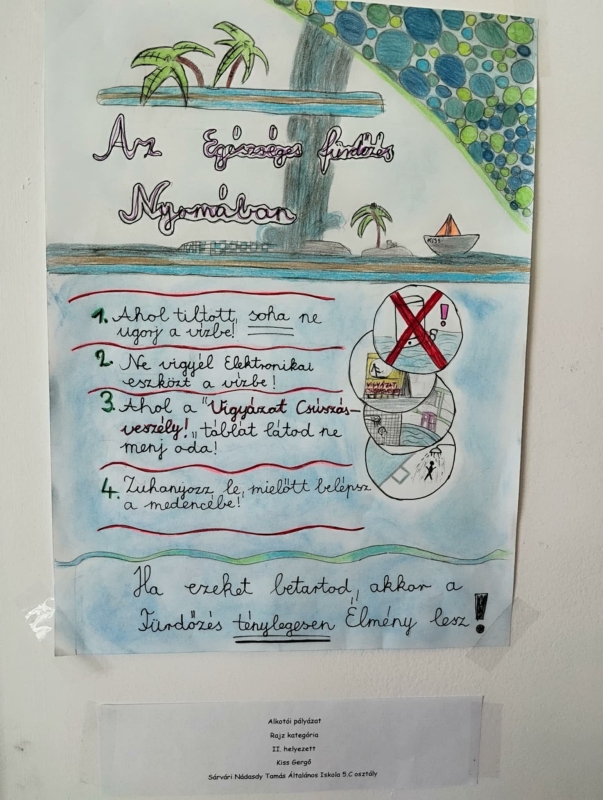 Az Egészséges fürdőzés
Nyomában
1. Ahol tiltott, soha ne
ugorj a vízbe!
2. Ne vigyél Elektronikai
eszközt a vízbe!
3. Ahol a "Vigyázat Csúszás-
veszély!" táblát látod ne
menj oda!
4. Zuhanyozz le, mielőtt belépsz
a medencébe!
Ha ezeket betartod, akkor a
Fürdőzés ténylegesen Élmény lesz!
Alkotói pályázat
Rajz kategória
II. helyezett
Kiss Gergő
Sárvári Nádasdy Tamás Általános Iskola 5.C osztály